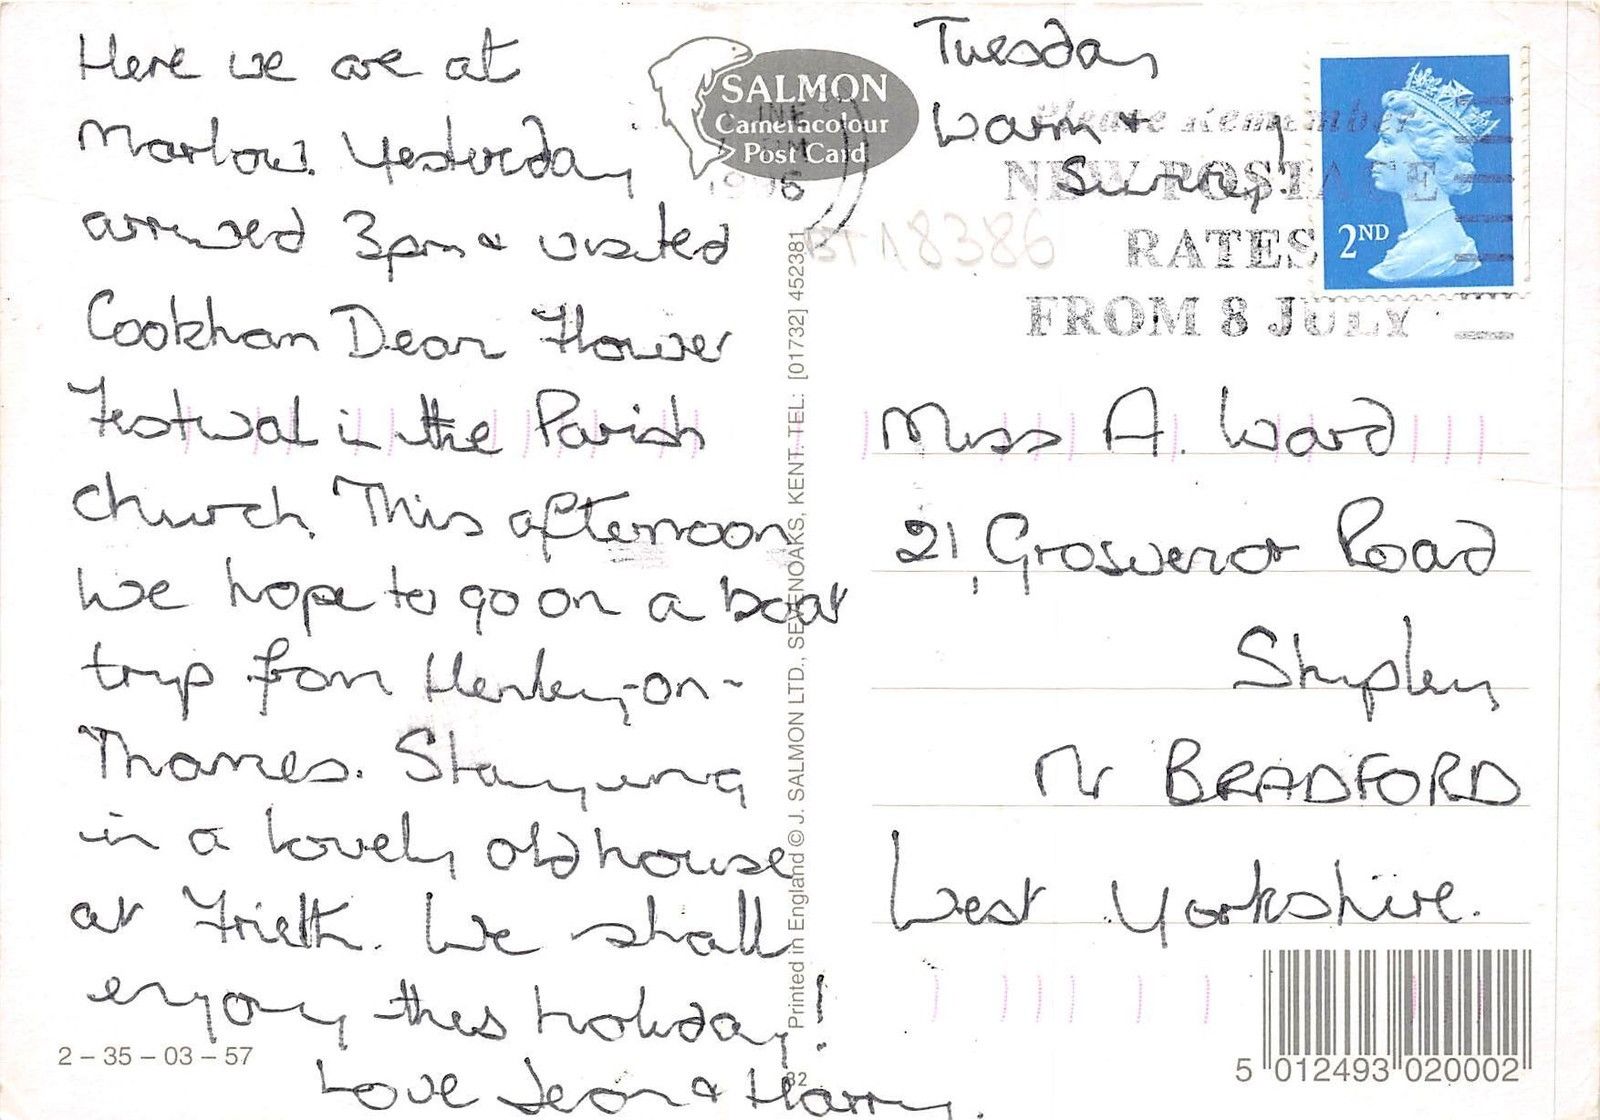 Here we are at
Marlow. Yesterday
arrived 3pm & visited
Cookham Dean Flower
Festival in the Parish
church. This afternoon
we hope to go on a boat
trip from Henley-on-
Thames. Staying
in a lovely old house
at Frieth. We shall
enjoy this holiday!
Love Jean & Harry.
2 – 35 – 03 – 57
SALMON
Cameracolour
Post Card
Printed in England © J. SALMON LTD., SEVENOAKS, KENT. TEL: [01732] 452381
32
Tuesday
Warm &
Sunny!
Please Remember
NEW POSTAGE
RATES
FROM 8 JULY
1996
18386
2ND
Miss A. Ward
21, Grosvenor Road
Shipley
Nr BRADFORD
West Yorkshire.
5 012493 020002